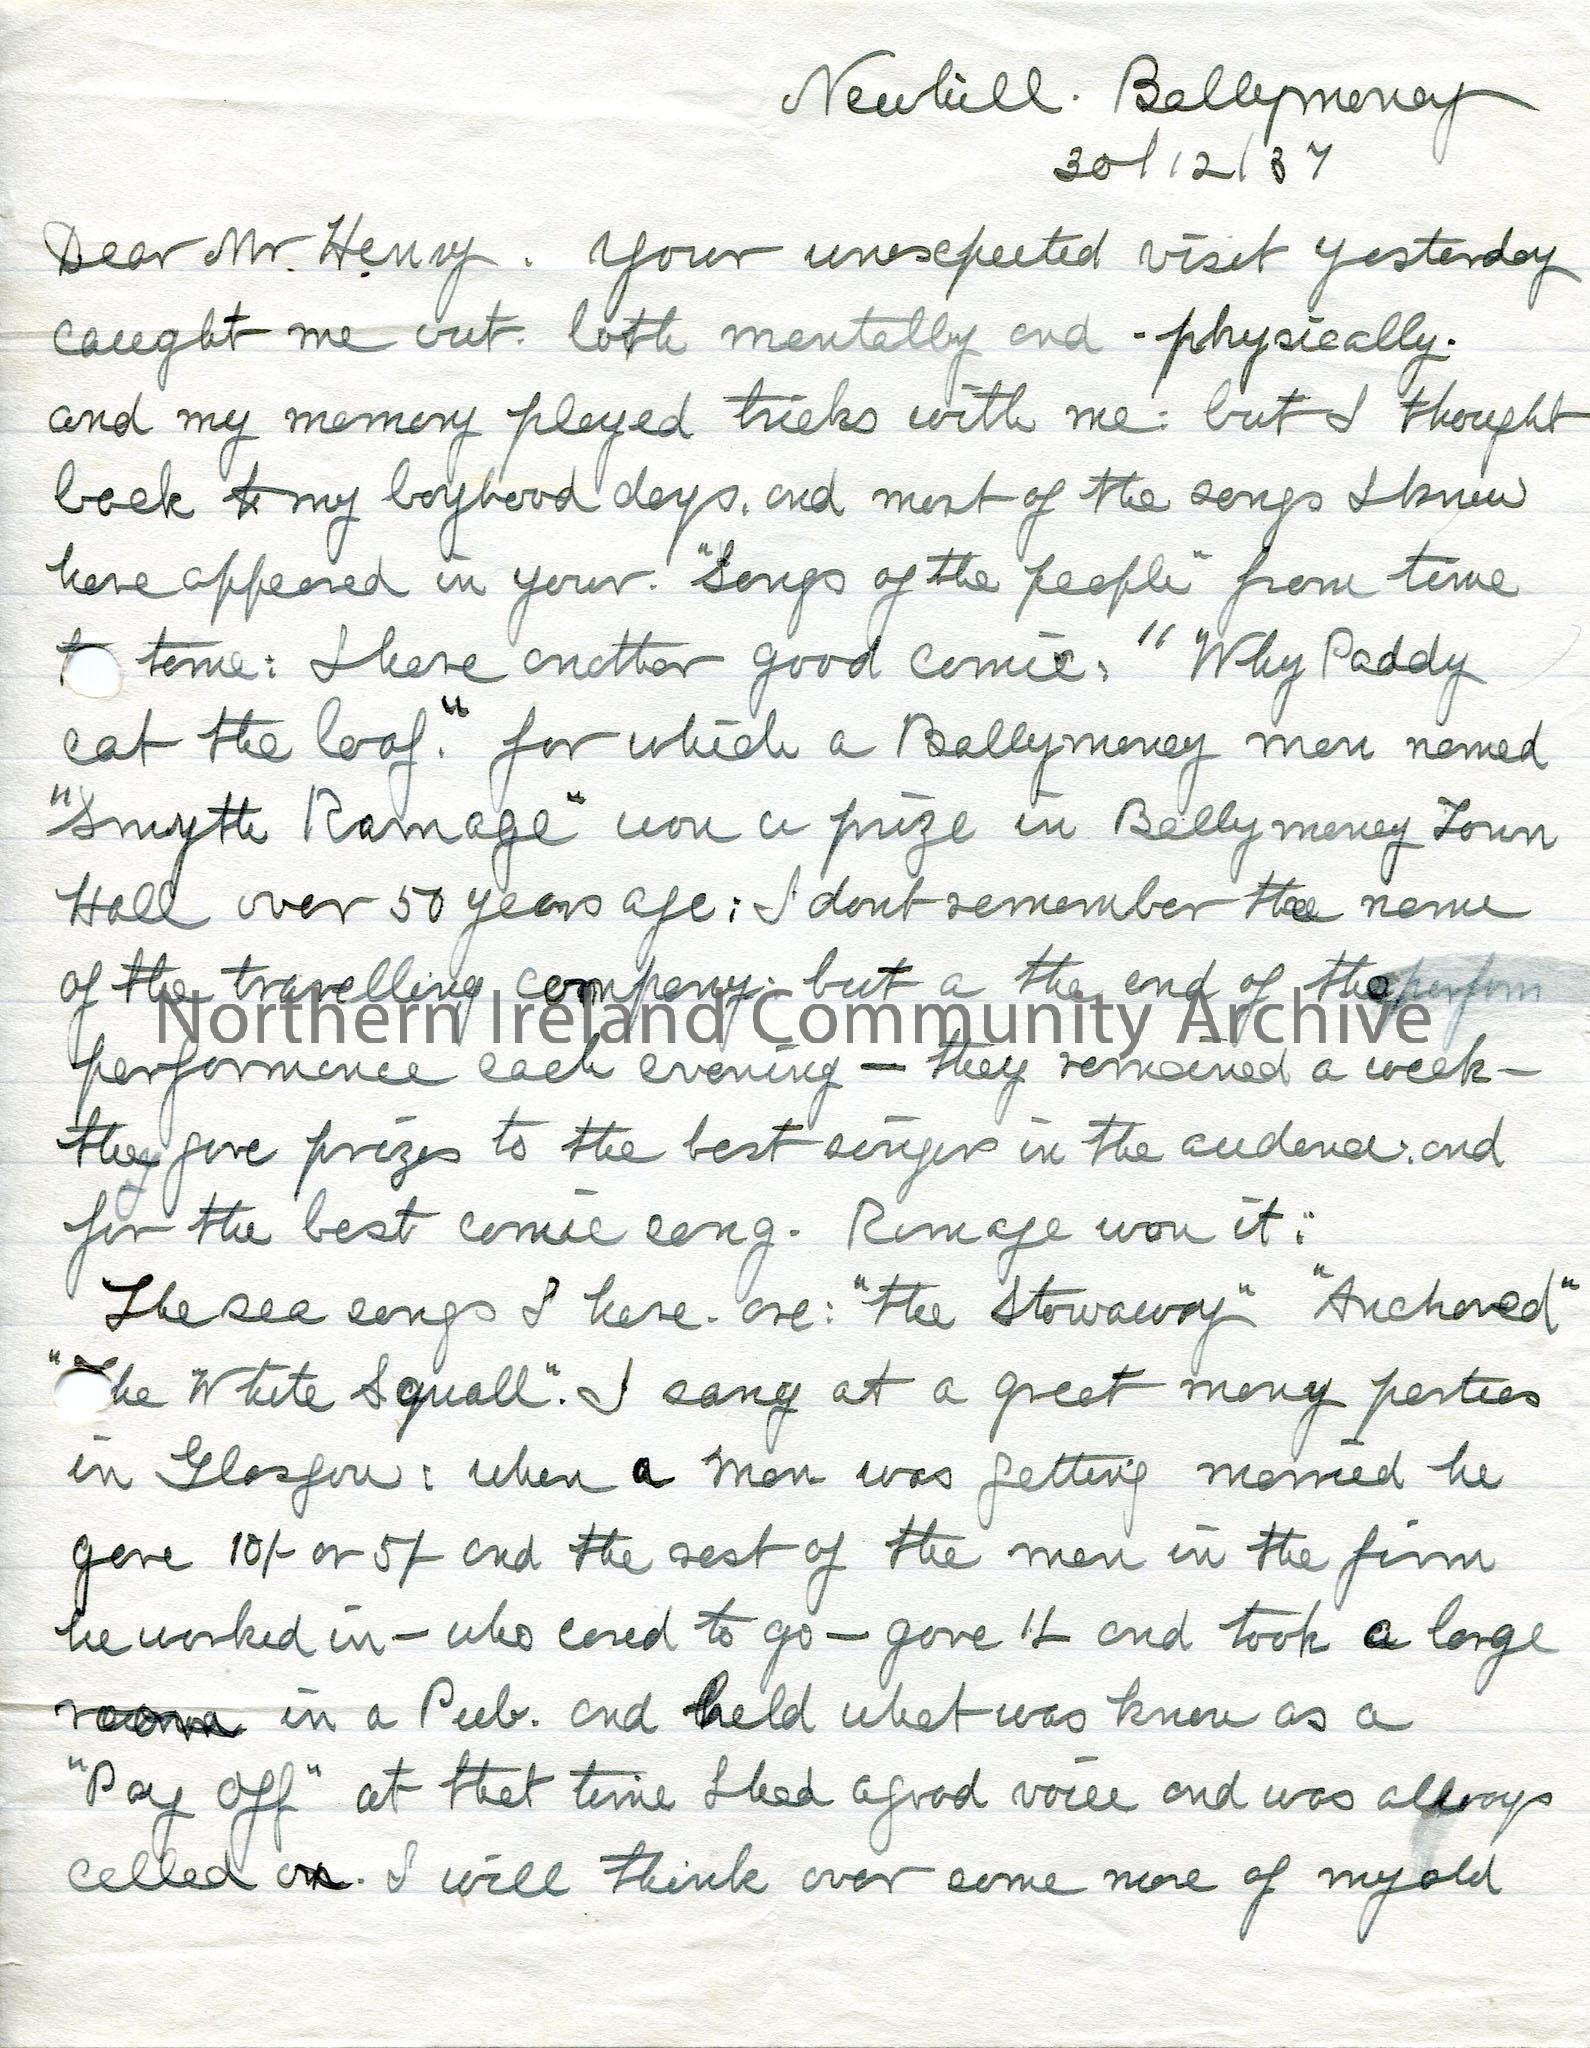 Newhill. Ballymoney
30/12/37
Dear Mr. Henry. Your unexpected visit yesterday
caught me out. both mentally and - physically.
and my memory played tricks with me: but I thought
back to my boyhood days, and most of the songs I knew
have appeared in your. "Songs of the people" from time
t time: I have another good comic, " "Why Paddy
eat the loaf." for which a Ballymoney man named
"Smyth Ramage" won a prize in Ballymoney Town
Hall over 50 years ago; I dont remember the name
of the travelling company; but a the end of the perform
Northern Ireland Community Archive
performance each evening — they remained a week —
they gave prizes to the best singers in the audence: and
for the best comic song. Ramage won it:
The sea songs I have. are: "the Stowaway" "Anchored"
"The White Squall". I sang at a great many parties
in Glasgow: when a man was getting married he
gave 10/- or 5/- and the rest of the men in the firm
he worked in — who cared to go — gave 1/- and took a large
room in a Pub. and held what was known as a
"Pay Off" at that time I had a good voice and was allways
called on. I will think over some more of my old